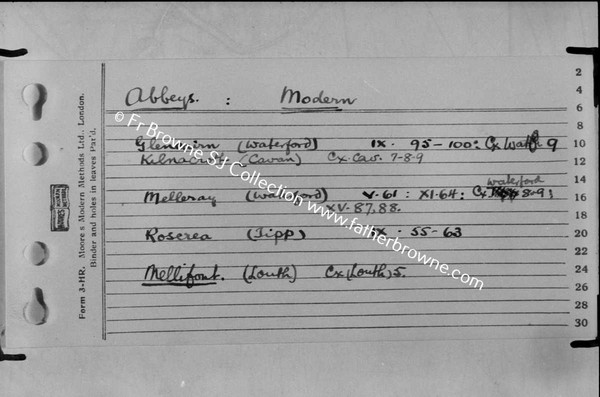 Abbeys. : Modern
Glencairn (Waterford) IX. 95-100: Cx Watf 9
Kilnacrott (Cavan) Cx. Cav. 7-8-9
waterford
Melleray (Waterford) V-61 : XI-64: Cx 8-9;
XV-87,88.
Roscrea (Tipp) IX. 55-63
Mellifont. (Louth) Cx (Louth) 5.
2
4
6
8
10
12
14
16
18
20
22
24
26
28
30
Form 3-HR. Moore's Modern Methods Ltd., London.
Binder and holes in leaves Pat'd.
© Fr Browne SJ Collection www.fatherbrowne.com